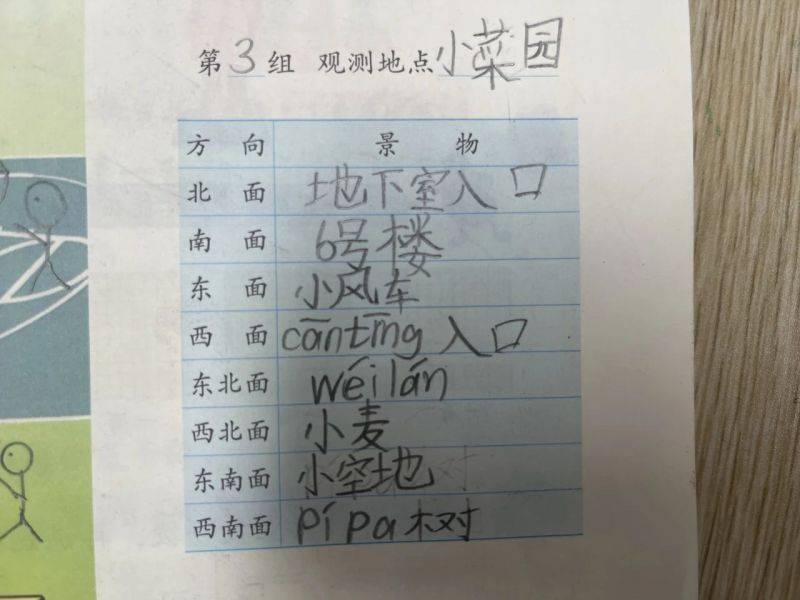 第3组 观测地点小菜园
方向 景物
北面 地下室入口
南面 6号楼
东面 小风车
西面 cāntīng入口
东北面 wéilán
西北面 小麦
东南面 小空地
西南面 pípa树